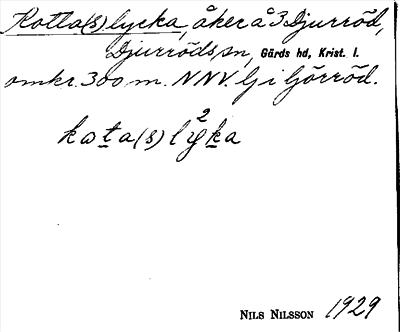 Kotta(s)lycka, åker å 3 Djurröd,
Djurröds sn, Gärds hd, Krist. l.
omkr. 300 m. NNV. lj i ljörröd.
kωta(s)lỳ²ka
Nils Nilsson 1929